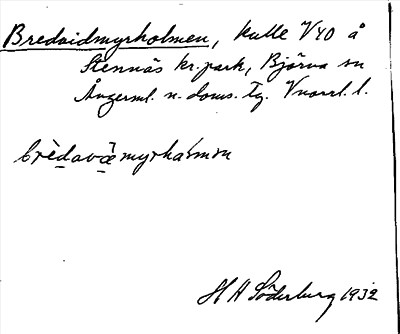 Bredvidmyrholmen, kulle V40 å
Stennäs kr.park, Björna sn
Ångerml. n. doms. Tg. Vnorrl. l.
brèdavæ̀myrhaḷmɐn
H A Söderburg 1932